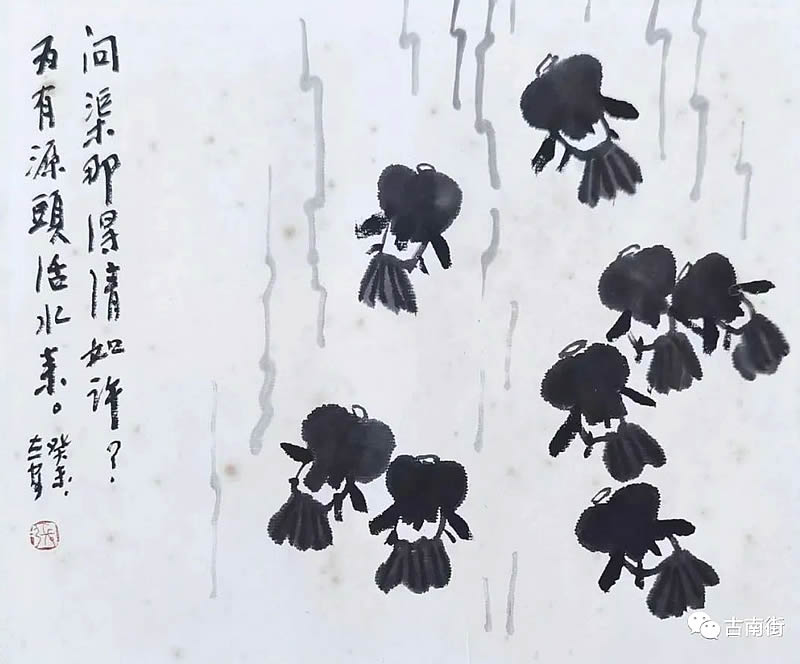 问渠那得清如许？
为有源頭活水来。
癸未.
古南街